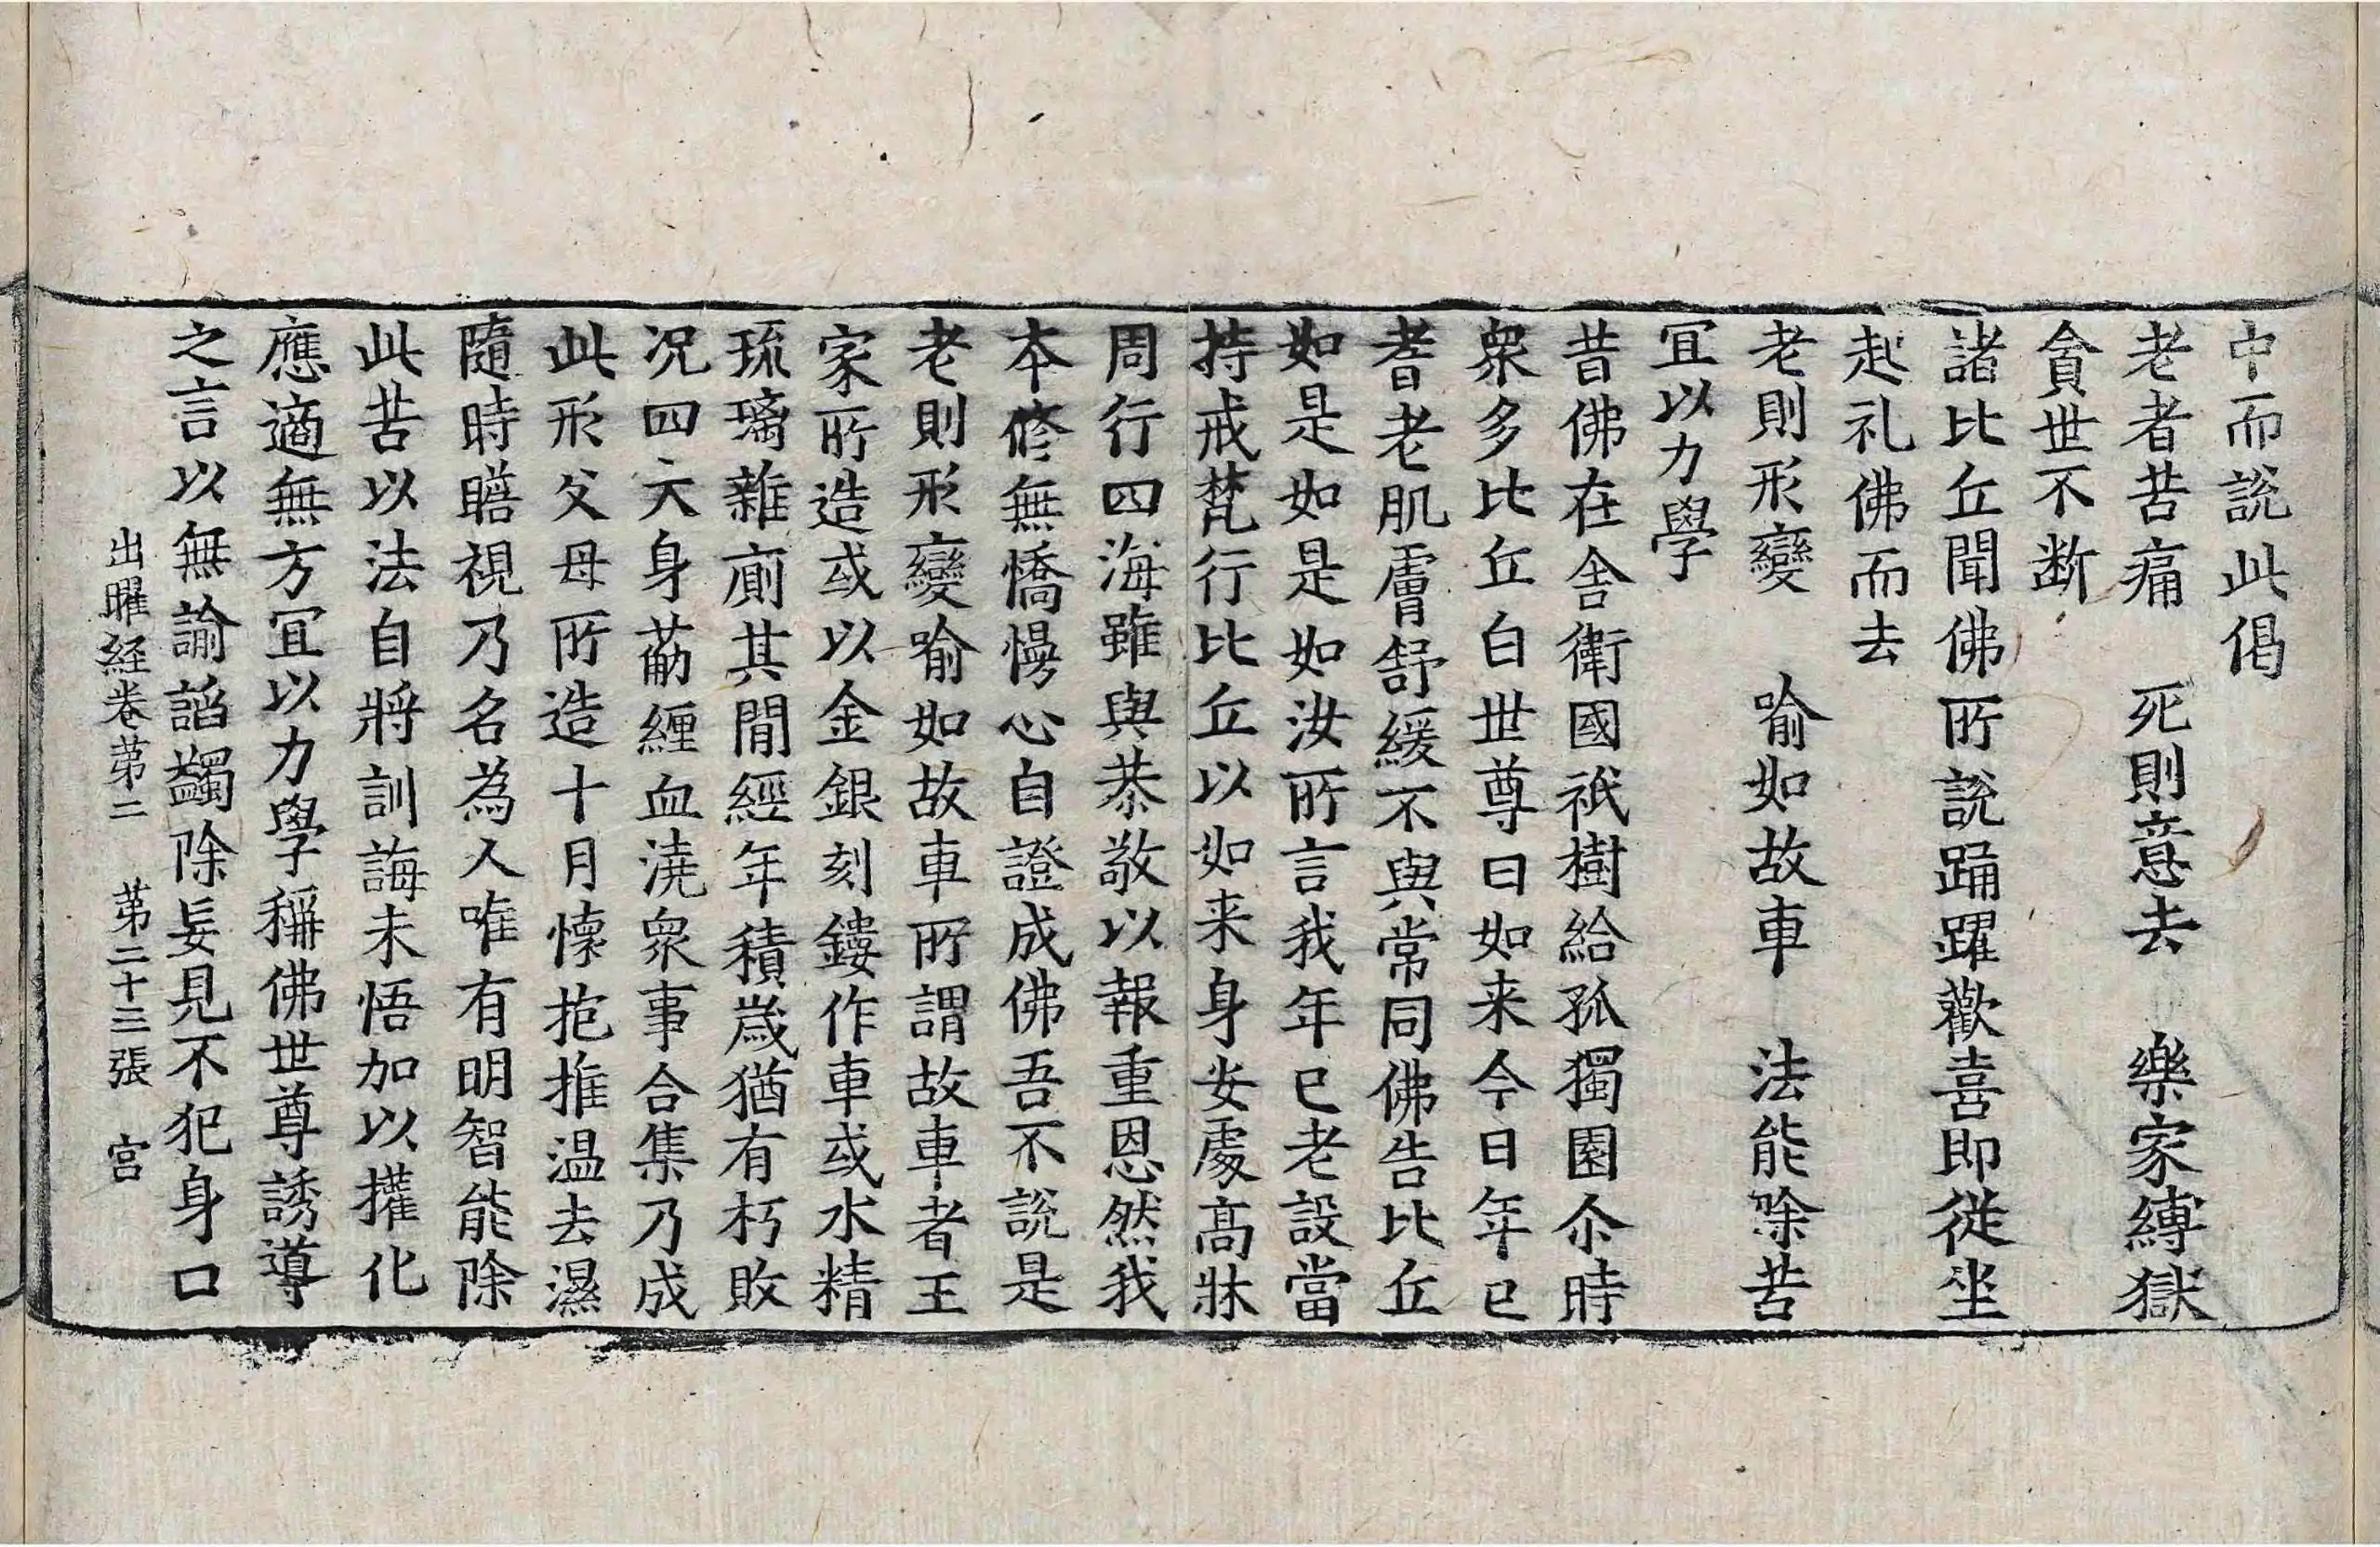 中而說此偈
老者苦痛　死則意去　樂家縛獄
貪世不断
諸比丘聞佛所說踊躍歡喜即從坐
起礼佛而去
老則形變　喻如故車　法能除苦
冝以力學
昔佛在舍衛國祇樹給孤獨園尒時
衆多比丘白世尊曰如来今日年已
耆老肌膚舒緩不與常同佛告比丘
如是如是如汝所言我年已老設當
持戒梵行比丘以如来身安處高牀
周行四海雖與恭敬以報重恩然我
本修無憍慢心自證成佛吾不說是
老則形變喻如故車所謂故車者王
家所造或以金銀刻鏤作車或水精
琉璃雜廁其間經年積歲猶有朽敗
况四大身葪纏血澆衆事合集乃成
此形父母所造十月懷抱推温去濕
隨時瞻視乃名為人唯有明智能除
此苦以法自將訓誨未悟加以擢化
應適無方冝以力學稱佛世尊誘導
之言以無諭諂蠲除妄見不犯身口
出曜経卷苐二　苐二十三張　宫